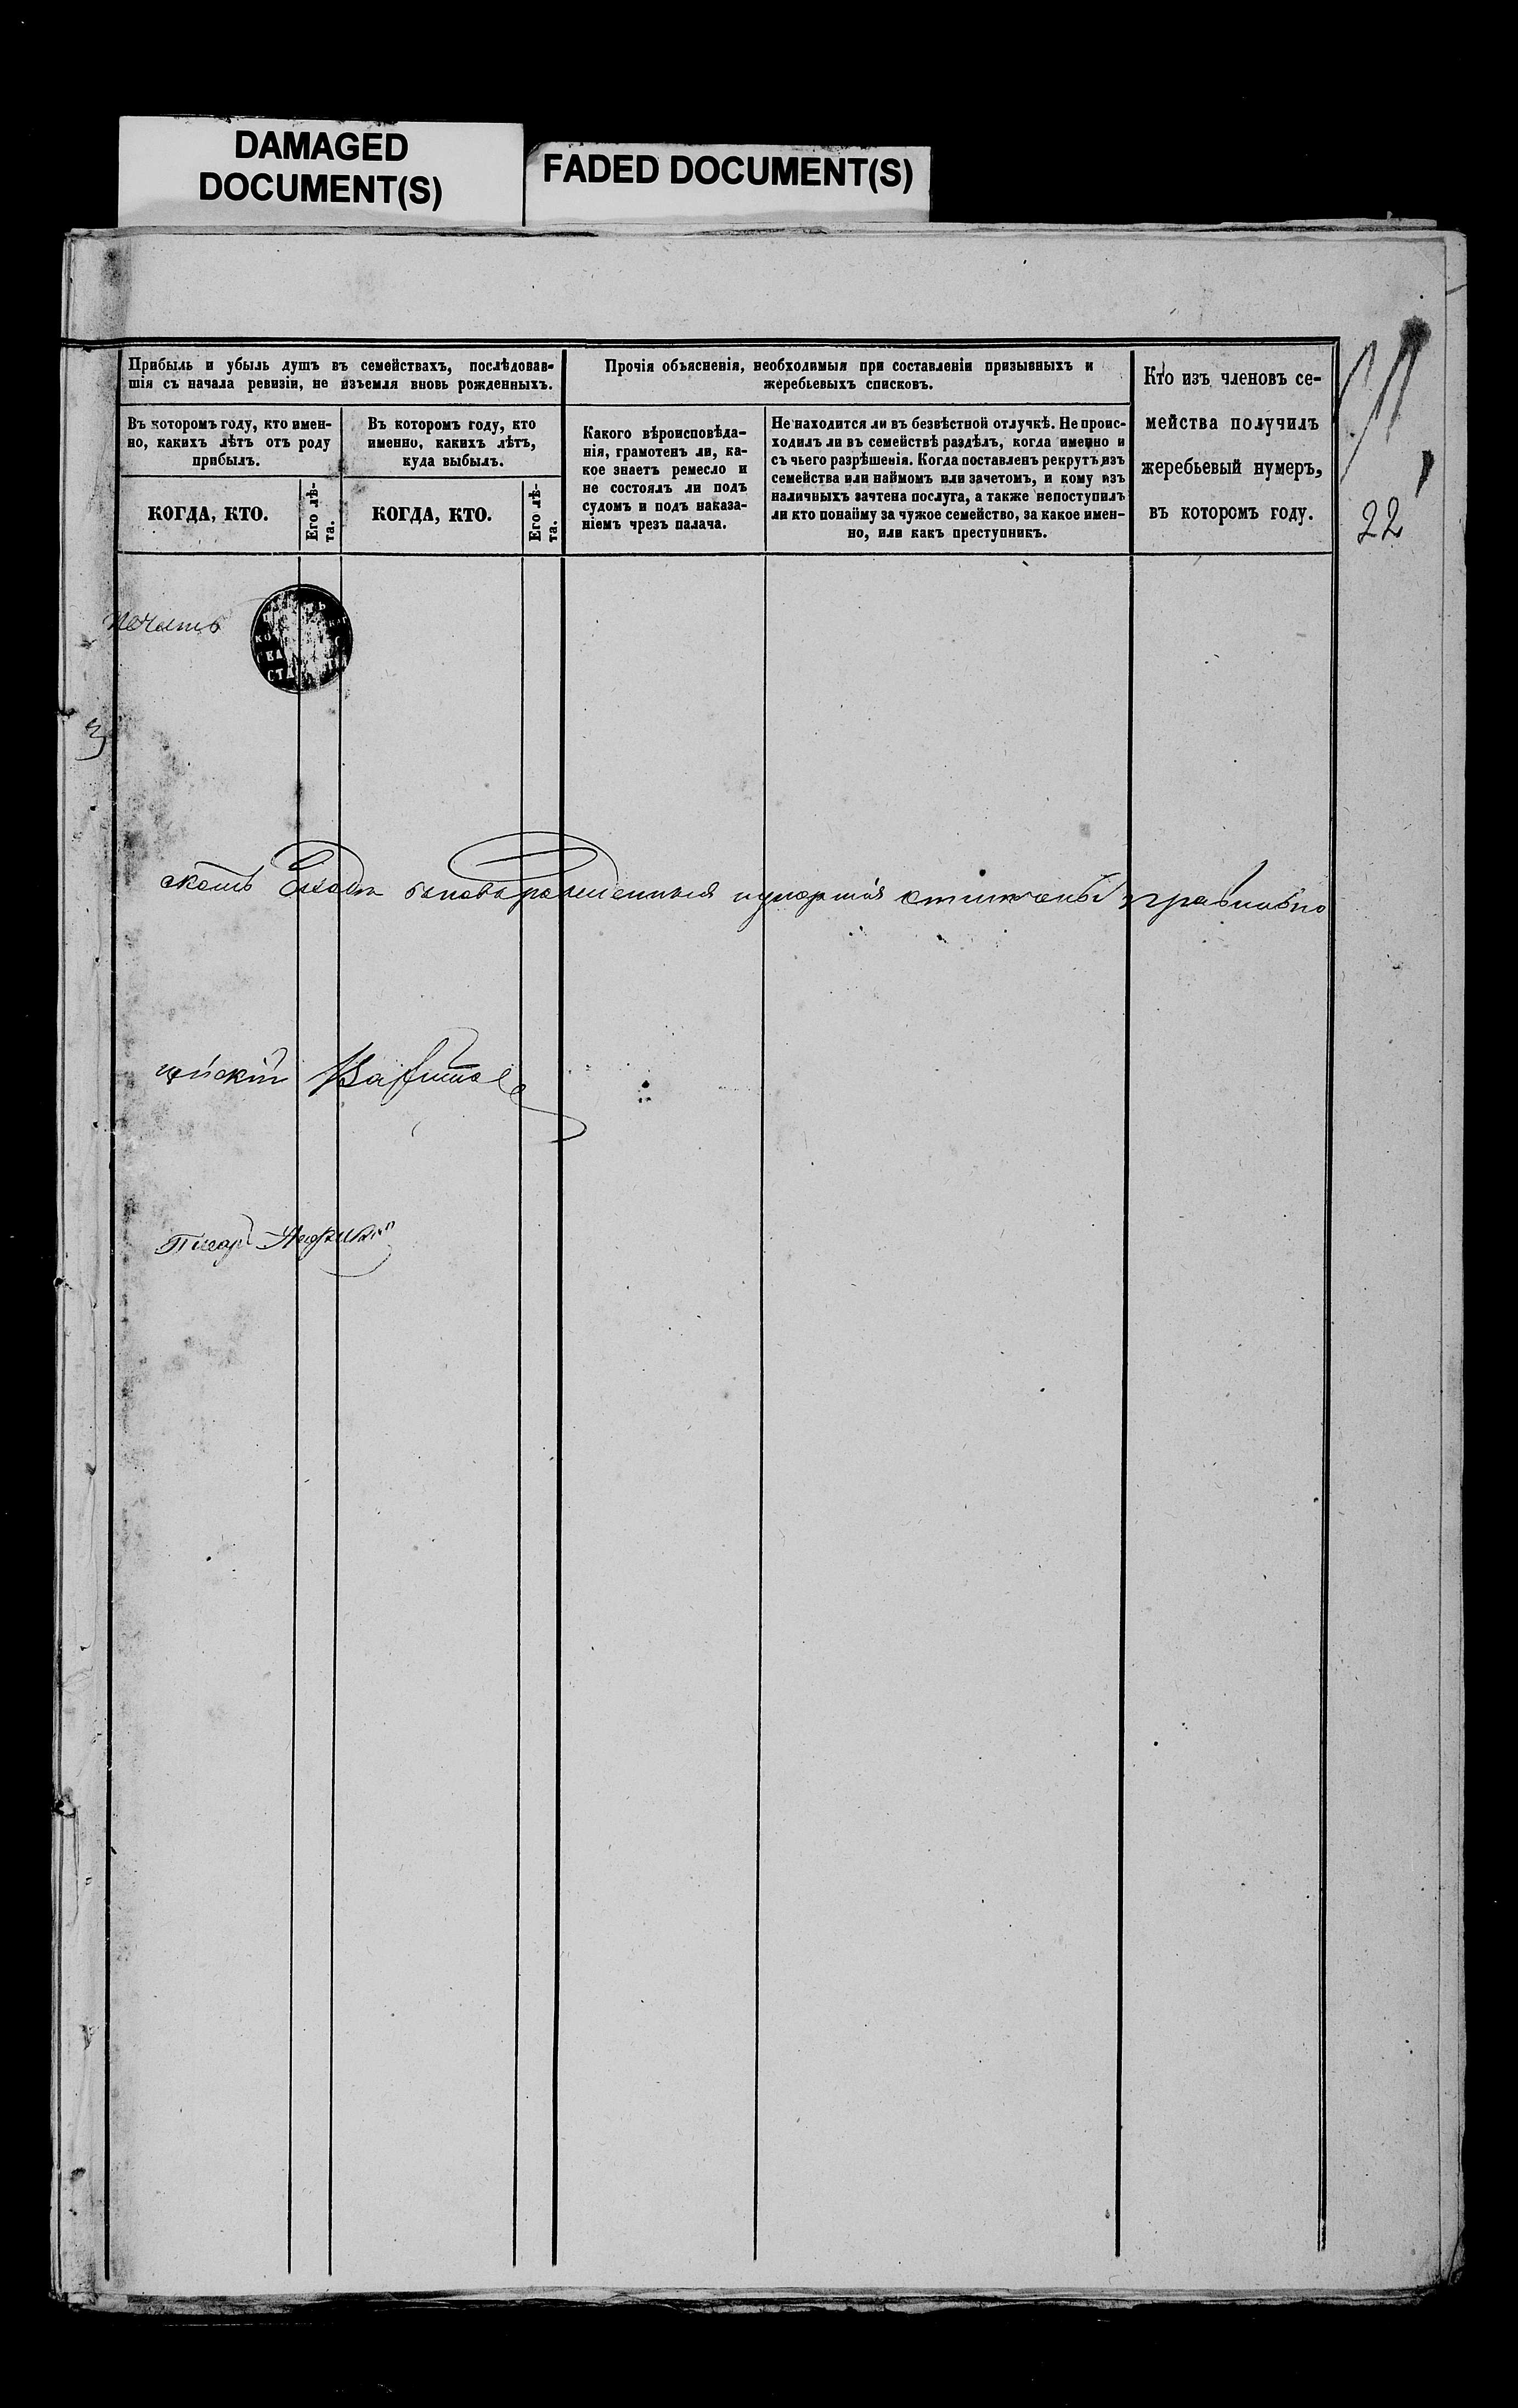 DAMAGED
DOCUMENT(S)
FADED DOCUMENT(S)
Прибыль и убыль душъ въ семействахъ, послѣдовав-
шія съ начала ревизіи, не изъемля вновь рожденныхъ.
Въ которомъ году, кто имен-
но, какихъ лѣтъ отъ роду
прибылъ.
КОГДА, КТО.
Его лѣ-
та.
Въ которомъ году, кто
именно, какихъ лѣтъ,
куда выбылъ.
КОГДА, КТО.
Его лѣ-
та.
Прочія объясненія, необходимыя при составленіи призывныхъ и
жеребьевыхъ списковъ.
Какого вѣроисповѣда-
нія, грамотенъ ли, ка-
кое знаетъ ремесло и
не состоялъ ли подъ
судомъ и подъ наказа-
ніемъ чрезъ палача.
Не находится ли въ безвѣстной отлучкѣ. Не проис-
ходилъ ли въ семействѣ раздѣлъ, когда именно и
съ чьего разрѣшенія. Когда поставленъ рекрутъ изъ
семейства или наймомъ или зачетомъ, и кому изъ
наличныхъ зачтена послуга, а также непоступилъ
ли кто понайму за чужое семейство, за какое имен-
но, или какъ преступникъ.
Кто изъ членовъ се-
мейства получилъ
жеребьевый нумеръ,
въ которомъ году.
22
печать
правильно
Писарь